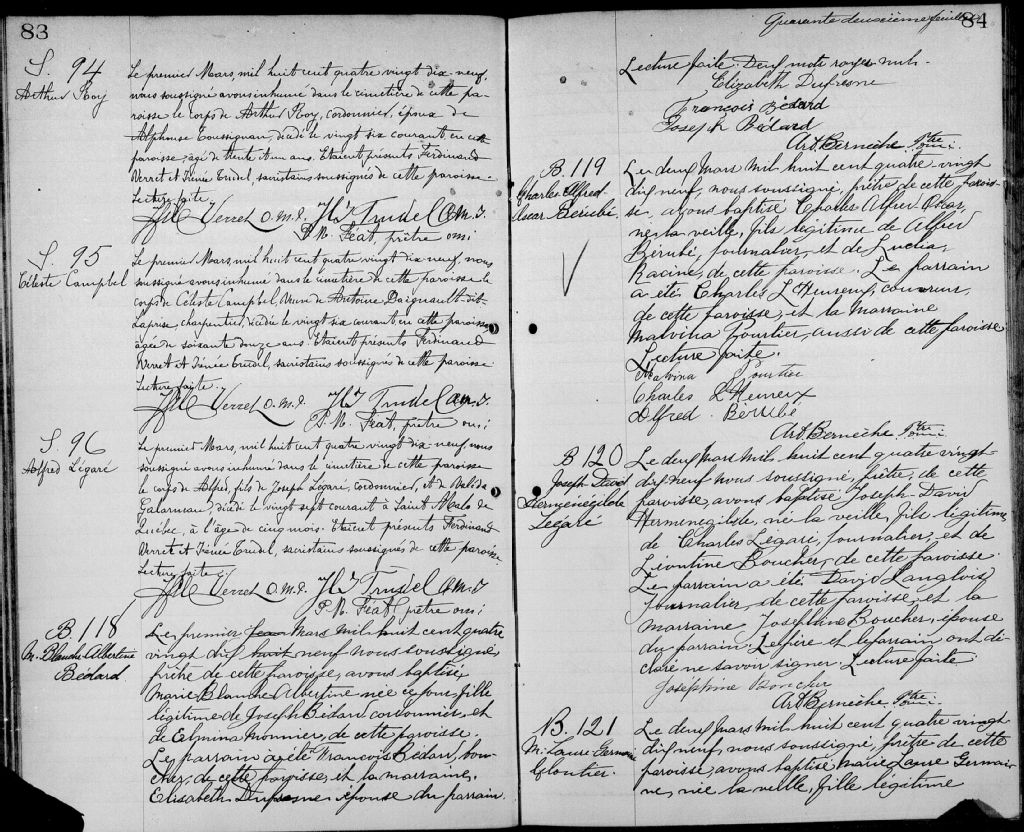 83
S. 94
Arthur Roy
Le premier Mars, mil huit cent quatre vingt dix-neuf,
nous soussigné avons inhumé dans le cimetière de cette pa-
roisse le corps de Arthur Roy, cordonnier, époux de
Alphonse Toussignan, décédé le vingt six courant en cette
paroisse, âgé de trente ans. Etaient présents Ferdinand
Verret et Irénée Trudel, sacristains soussignés de cette paroisse.
Lecture faite.
Verret O.M.I. Trudel O.M.I.
P. N. Féat, prêtre omi
S. 95
Céleste Campbel
Le premier Mars, mil huit cent quatre vingt dix neuf, nous
soussigné avons inhumé dans le cimetière de cette paroisse le
corps de Céleste Campbel, veuve de Antoine Daignault dit
Laprise, charpentier, décédée le vingt six courant en cette paroisse
âgée de soixante douze ans. Etaient présents Ferdinand
Verret et Irénée Trudel, sacristains soussignés de cette paroisse.
Lecture faite.
Verret O.M.I. Trudel O.M.I.
P. N. Féat, prêtre omi
S. 96
Alfred Légaré
Le premier Mars, mil huit cent quatre vingt dix-neuf, nous
soussigné avons inhumé dans le cimetière de cette paroisse
le corps de Alfred, fils de Joseph Légaré, cordonnier, et de Valida
Galarneau, décédé le vingt sept courant à Saint Malo de
Québec, à l'âge de cinq mois. Etaient présents Ferdinand
Verret et Irénée Trudel, sacristains soussignés de cette paroisse.
Lecture faite.
Verret O.M.I. Trudel O.M.I.
P. N. Féat, prêtre omi
B. 118
M. Blanche Albertine
Bédard
Le premier Mars mil huit cent quatre
vingt dix huit neuf nous soussigné,
prêtre de cette paroisse, avons baptisé,
Marie Blanche Albertine née ce jour, fille
légitime de Joseph Bédard cordonnier, et
de Elmina Monnier, de cette paroisse.
Le parrain a été François Bédard, bou-
cher, de cette paroisse, et la marraine,
Elisabeth Dufresne épouse du parrain.
Quarante deuxième feuillet
84
Lecture faite. Deux mots rayés nuls.
Elizabeth Dufresne
François Bédard
Joseph Bédard
Art. Bernèche Ptre
omi.
B. 119
Charles Alfred
Oscar Bérubé
Le deux Mars mil huit cent quatre-vingt
dix neuf, nous soussigné, prêtre de cette parois-
se, avons baptisé Charles Alfred Oscar,
né la veille, fils légitime de Alfred
Bérubé, journalier, et de Lucia
Racine, de cette paroisse. Le parrain
a été Charles L'Heureux, couvreur,
de cette paroisse, et la marraine
Malvina Pourtier, aussi de cette paroisse
Lecture faite.
Malvina Pourtier
Charles L'Heureux
Alfred Bérubé
Art. Bernèche Ptre
omi.
B 120
Joseph David
Hermenégilde
Legaré
Le deux Mars mil huit cent quatre vingt
dix neuf nous soussigné, prêtre, de cette
paroisse, avons baptisé Joseph-David
Hermenegilde, né la veille, fils légitime
de Charles Légaré, journalier, et de
Léontine Boucher, de cette paroisse.
Le parrain a été David Langlois
journalier, de cette paroisse, et la
marraine Joséphine Boucher, épouse
du parrain. Le père et le parrain ont dé-
claré ne savoir signer. Lecture faite
Joséphine Boucher
Art. Bernèche Ptre
omi.
B. 121
M. Laure Germaine
Cloutier.
Le deux Mars mil huit cent quatre vingt
dix neuf, nous soussigné, prêtre de cette
paroisse, avons baptisé, Marie Laure Germai-
ne, née la veille, fille légitime